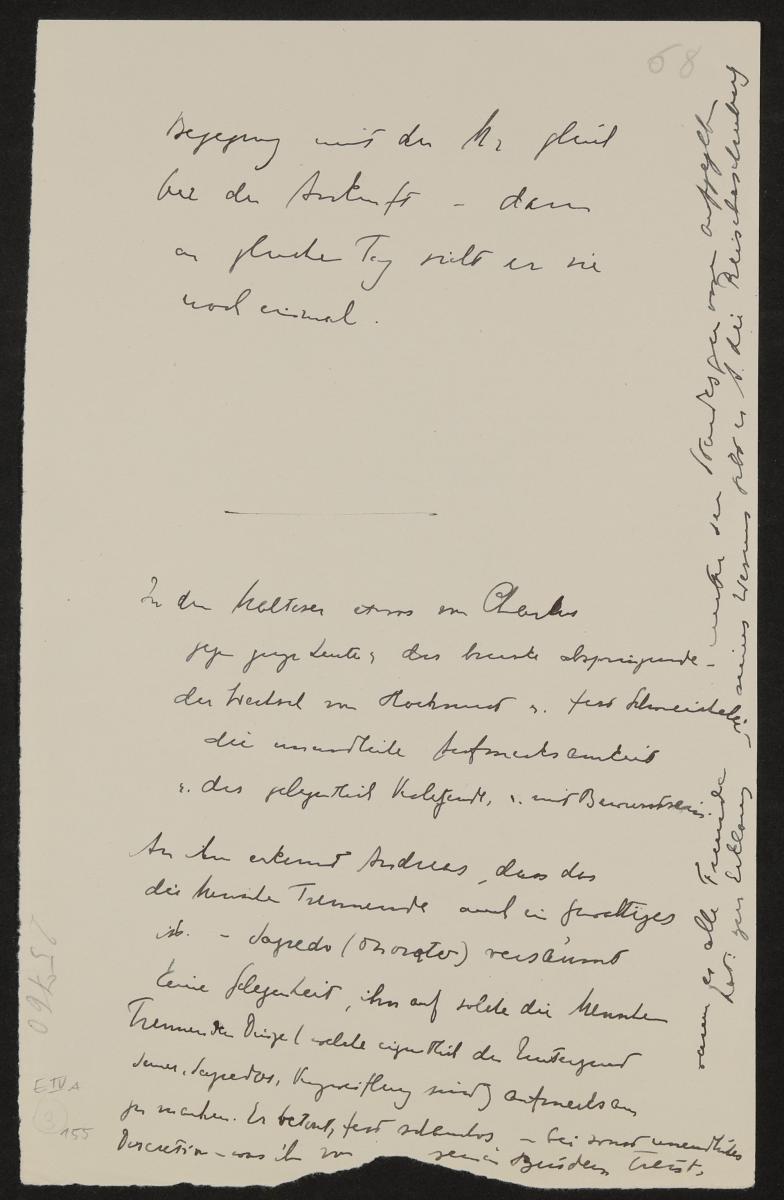 68
Begegnung mit der M2 gleich
bei der Ankunft – dann
am gleichen Tag sieht er sie
noch einmal.
In dem Malteser etwas von Charlus
gegen junge Leute: das brüske abspringende –
der Wechsel von Hochmut u. fast Schmeichelei
die unendliche Aufmerksamkeit
u. das gelegentlich Verletzende, u. mit Bewusstsein.
An ihm erkennt Andreas, dass das
die Menschen Trennende auch ein gewaltiges
ist. – Sagredo (Onorato) versäumt
keine Gelegenheit, ihn auf solche die Menschen
Trennenden Dinge (welche eigentlich der Untergrund
seiner, Sagredos, Verzweiflung sind) aufmerksam
zu machen. Er betont, fast schamlos – bei sonst unendlicher
Discretion – was ihn von seinem Bruder trennt,
warum er alle Freunde unter den Standesgenossen aufgegeben
hat: zur Erklärung seines Wesens gibt er A. die Reisebeschreibung
E IV A
3
155